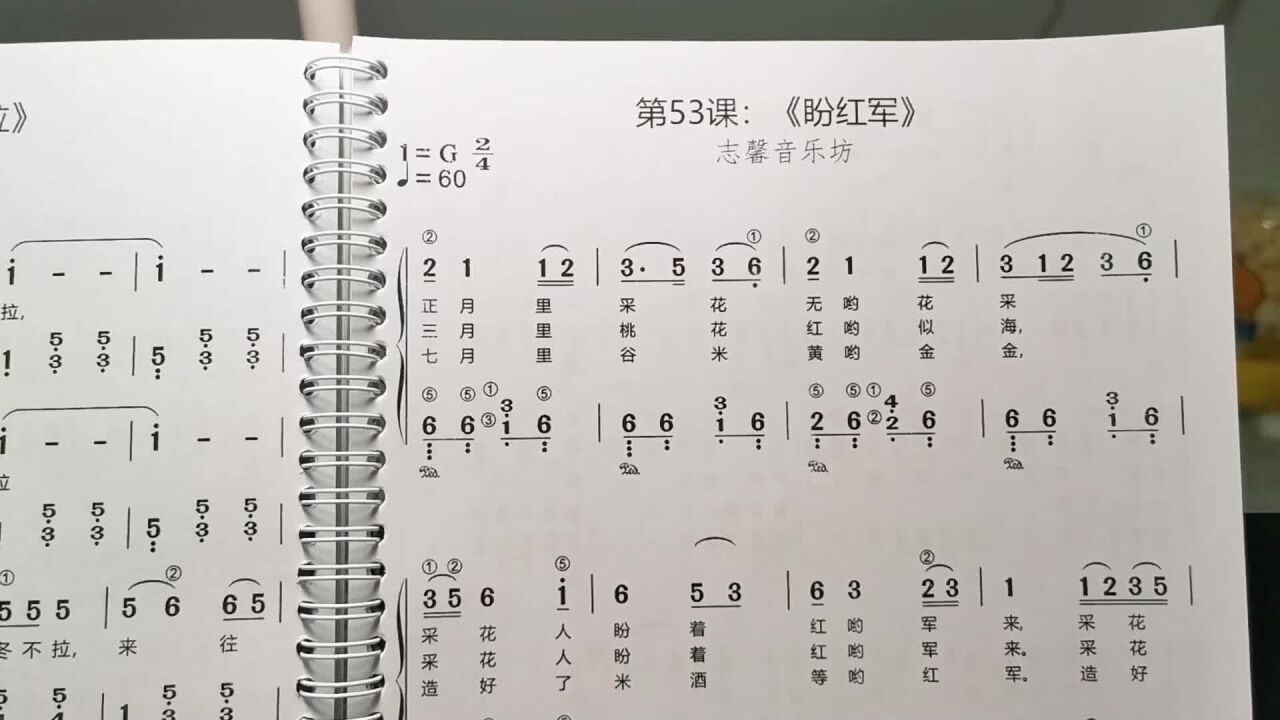 拉》
i - - | i - -
拉,
1 5 3 5 3 | 5 5 3 5 3
i - - | i - -
5 3 5 3 | 5 5 3 5 3
① ②
5 5 5 | 5 6 6 5
冬 不 拉, 来 往
第53课：《盼红军》
志馨音乐坊
1 = G 2/4
♩= 60
② ① ② ①
2 1 1 2 | 3· 5 3 6 | 2 1 1 2 | 3 1 2 3 6 |
正 月 里 采 花 无 哟 花 采
三 月 里 桃 花 红 哟 似 海,
七 月 里 谷 米 黄 哟 金 金,
⑤ ⑤ ① ③ ⑤ ⑤ ⑤ ① ② ⑤
6 6 3 1 6 | 6 6 3 1 6 | 2 6 4 2 6 | 6 6 3 1 6 |
① ② ⑤ ②
3 5 6 i | 6 5 3 | 6 3 2 3 | 1 1 2 3 5 |
采 花 人 盼 着 红 哟 军 来, 采 花
采 花 人 盼 着 红 哟 军 来。 采 花
造 好 了 米 酒 等 哟 红 军。 造 好